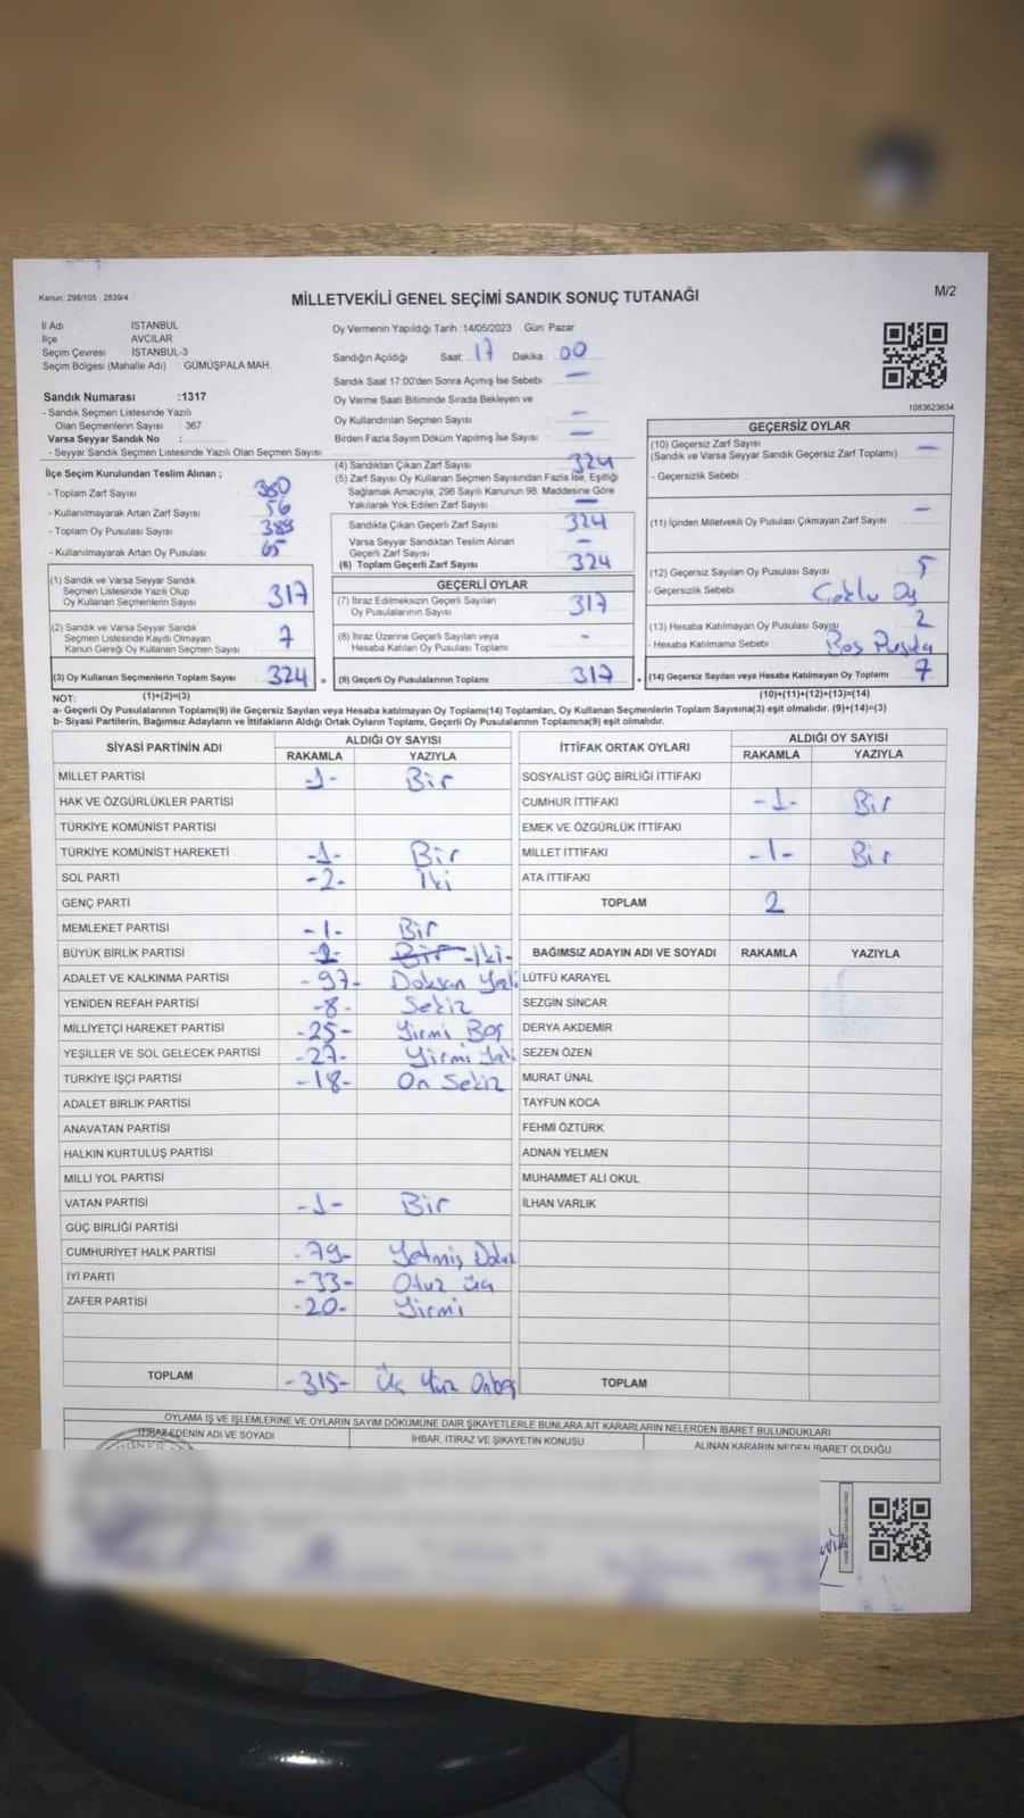 Kanun: 298/105 , 2839/4
MİLLETVEKİLİ GENEL SEÇİMİ SANDIK SONUÇ TUTANAĞI
M/2
İl Adı İSTANBUL
İlçe AVCILAR
Seçim Çevresi İSTANBUL-3
Seçim Bölgesi (Mahalle Adı) GÜMÜŞPALA MAH.
Sandık Numarası :1317
- Sandık Seçmen Listesinde Yazılı
Olan Seçmenlerin Sayısı 367
Varsa Seyyar Sandık No :
- Seyyar Sandık Seçmen Listesinde Yazılı Olan Seçmen Sayısı
Oy Vermenin Yapıldığı Tarih :14/05/2023 Gün: Pazar
Sandığın Açıldığı Saat: 17 Dakika: 00
Sandık Saat 17:00'den Sonra Açılmış İse Sebebi -
Oy Verme Saati Bitiminde Sırada Bekleyen ve
Oy Kullandırılan Seçmen Sayısı -
Birden Fazla Sayım Döküm Yapılmış İse Sayısı -
1083623634
İlçe Seçim Kurulundan Teslim Alınan ;
- Toplam Zarf Sayısı 380
- Kullanılmayarak Artan Zarf Sayısı 56
- Toplam Oy Pusulası Sayısı
- Kullanılmayarak Artan Oy Pusulası 65
(1) Sandık ve Varsa Seyyar Sandık
Seçmen Listesinde Yazılı Olup
Oy Kullanan Seçmenlerin Sayısı 317
(2) Sandık ve Varsa Seyyar Sandık
Seçmen Listesinde Kaydı Olmayan
Kanun Gereği Oy Kullanan Seçmen Sayısı 7
(3) Oy Kullanan Seçmenlerin Toplam Sayısı 324
(4) Sandıktan Çıkan Zarf Sayısı 324
(5) Zarf Sayısı Oy Kullanan Seçmen Sayısından Fazla İse, Eşitliği
Sağlamak Amacıyla, 298 Sayılı Kanunun 98. Maddesine Göre
Yakılarak Yok Edilen Zarf Sayısı -
Sandıkta Çıkan Geçerli Zarf Sayısı 324
Varsa Seyyar Sandıktan Teslim Alınan
Geçerli Zarf Sayısı -
(6) Toplam Geçerli Zarf Sayısı 324
GEÇERLİ OYLAR
(7) İtiraz Edilmeksizin Geçerli Sayılan
Oy Pusulalarının Sayısı 317
(8) İtiraz Üzerine Geçerli Sayılan veya
Hesaba Katılan Oy Pusulası Toplamı -
(9) Geçerli Oy Pusulalarının Toplamı 317
GEÇERSİZ OYLAR
(10) Geçersiz Zarf Sayısı
(Sandık ve Varsa Seyyar Sandık Geçersiz Zarf Toplamı) -
- Geçersizlik Sebebi
(11) İçinden Milletvekili Oy Pusulası Çıkmayan Zarf Sayısı -
(12) Geçersiz Sayılan Oy Pusulası Sayısı 5
- Geçersizlik Sebebi Çoklu Oy
(13) Hesaba Katılmayan Oy Pusulası Sayısı 2
- Hesaba Katılmama Sebebi Boş Pusula
(14) Geçersiz Sayılan veya Hesaba Katılmayan Oy Toplamı 7
NOT: (1)+(2)=(3) (10)+(11)+(12)+(13)=(14)
a- Geçerli Oy Pusulalarının Toplamı(9) ile Geçersiz Sayılan veya Hesaba katılmayan Oy Toplamı(14) Toplamları, Oy Kullanan Seçmenlerin Toplam Sayısına(3) eşit olmalıdır. (9)+(14)=(3)
b- Siyasi Partilerin, Bağımsız Adayların ve İttifakların Aldığı Ortak Oyların Toplamı, Geçerli Oy Pusulalarının Toplamına(9) eşit olmalıdır.
SİYASİ PARTİNİN ADI ALDIĞI OY SAYISI
RAKAMLA YAZIYLA
MİLLET PARTİSİ -1- Bir
HAK VE ÖZGÜRLÜKLER PARTİSİ
TÜRKİYE KOMÜNİST PARTİSİ
TÜRKİYE KOMÜNİST HAREKETİ -1- Bir
SOL PARTİ -2- İki
GENÇ PARTİ
MEMLEKET PARTİSİ -1- Bir
BÜYÜK BİRLİK PARTİSİ -2- Bir -İki-
ADALET VE KALKINMA PARTİSİ -97- Doksan Yedi
YENİDEN REFAH PARTİSİ -8- Sekiz
MİLLİYETÇİ HAREKET PARTİSİ -25- Yirmi Beş
YEŞİLLER VE SOL GELECEK PARTİSİ -27- Yirmi Yedi
TÜRKİYE İŞÇİ PARTİSİ -18- On Sekiz
ADALET BİRLİK PARTİSİ
ANAVATAN PARTİSİ
HALKIN KURTULUŞ PARTİSİ
MİLLİ YOL PARTİSİ
VATAN PARTİSİ -1- Bir
GÜÇ BİRLİĞİ PARTİSİ
CUMHURİYET HALK PARTİSİ -79- Yetmiş Dokuz
İYİ PARTİ -33- Otuz üç
ZAFER PARTİSİ -20- Yirmi
TOPLAM -315- Üç Yüz Onbeş
İTTİFAK ORTAK OYLARI ALDIĞI OY SAYISI
RAKAMLA YAZIYLA
SOSYALİST GÜÇ BİRLİĞİ İTTİFAKI
CUMHUR İTTİFAKI -1- Bir
EMEK VE ÖZGÜRLÜK İTTİFAKI
MİLLET İTTİFAKI -1- Bir
ATA İTTİFAKI
TOPLAM 2
BAĞIMSIZ ADAYIN ADI VE SOYADI RAKAMLA YAZIYLA
LÜTFÜ KARAYEL
SEZGİN SİNCAR
DERYA AKDEMİR
SEZEN ÖZEN
MURAT ÜNAL
TAYFUN KOCA
FEHMİ ÖZTÜRK
ADNAN YELMEN
MUHAMMET ALİ OKUL
İLHAN VARLIK
TOPLAM
OYLAMA İŞ VE İŞLEMLERİNE VE OYLARIN SAYIM DÖKÜMÜNE DAİR ŞİKAYETLERLE BUNLARA AİT KARARLARIN NELERDEN İBARET BULUNDUKLARI
İTİRAZ EDENİN ADI VE SOYADI İHBAR, İTİRAZ VE ŞİKAYETİN KONUSU ALINAN KARARIN NEDEN İBARET OLDUĞU